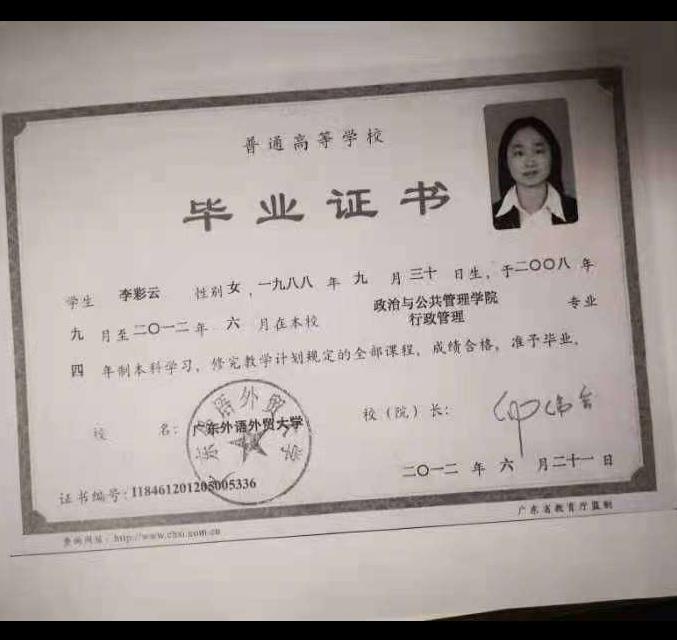 普通高等学校
毕业证书
学生 李彩云 性别 女，一九八八 年 九 月 三十 日生，于二〇〇八 年
九 月至二〇一二年 六 月在本校 政治与公共管理学院 行政管理 专业
四 年制本科学习，修完教学计划规定的全部课程，成绩合格，准予毕业。
校 名：广东外语外贸大学 校（院）长：
二〇一二 年 六 月二十一 日
证书编号：118461201205005336
查询网址：http://www.chsi.com.cn
广东省教育厅监制